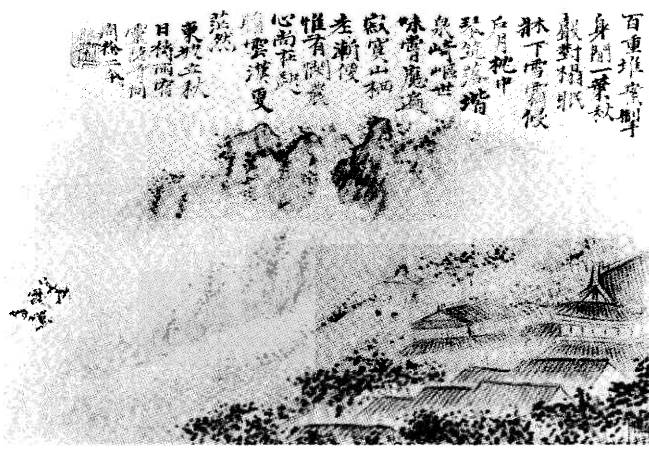 百重堆案掣
身閒一葉秋
聲對榻眠
牀下雪霜侵
戶月枕中
琴筑落堦
泉崎嶇世
味嘗應遍
寂寞山栖
老漸便
惟有憫農
心尚在起
雲漢更
茫然
東坡立秋
日禱雨宿
靈隱寺同
周徐二令